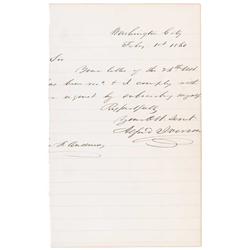 Washington City
Feby 1st 1860
Sir
Your letter of the 28th ult
has been recd & I comply with
request by subscribing myself
Respectfully
Your Obt Servt
Alfred Iverson
Andrews